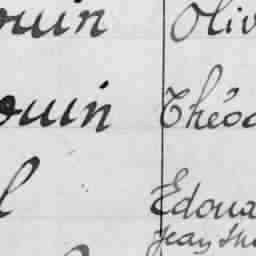 ouin Oliv
ouin Théod
l Edoua
Jean